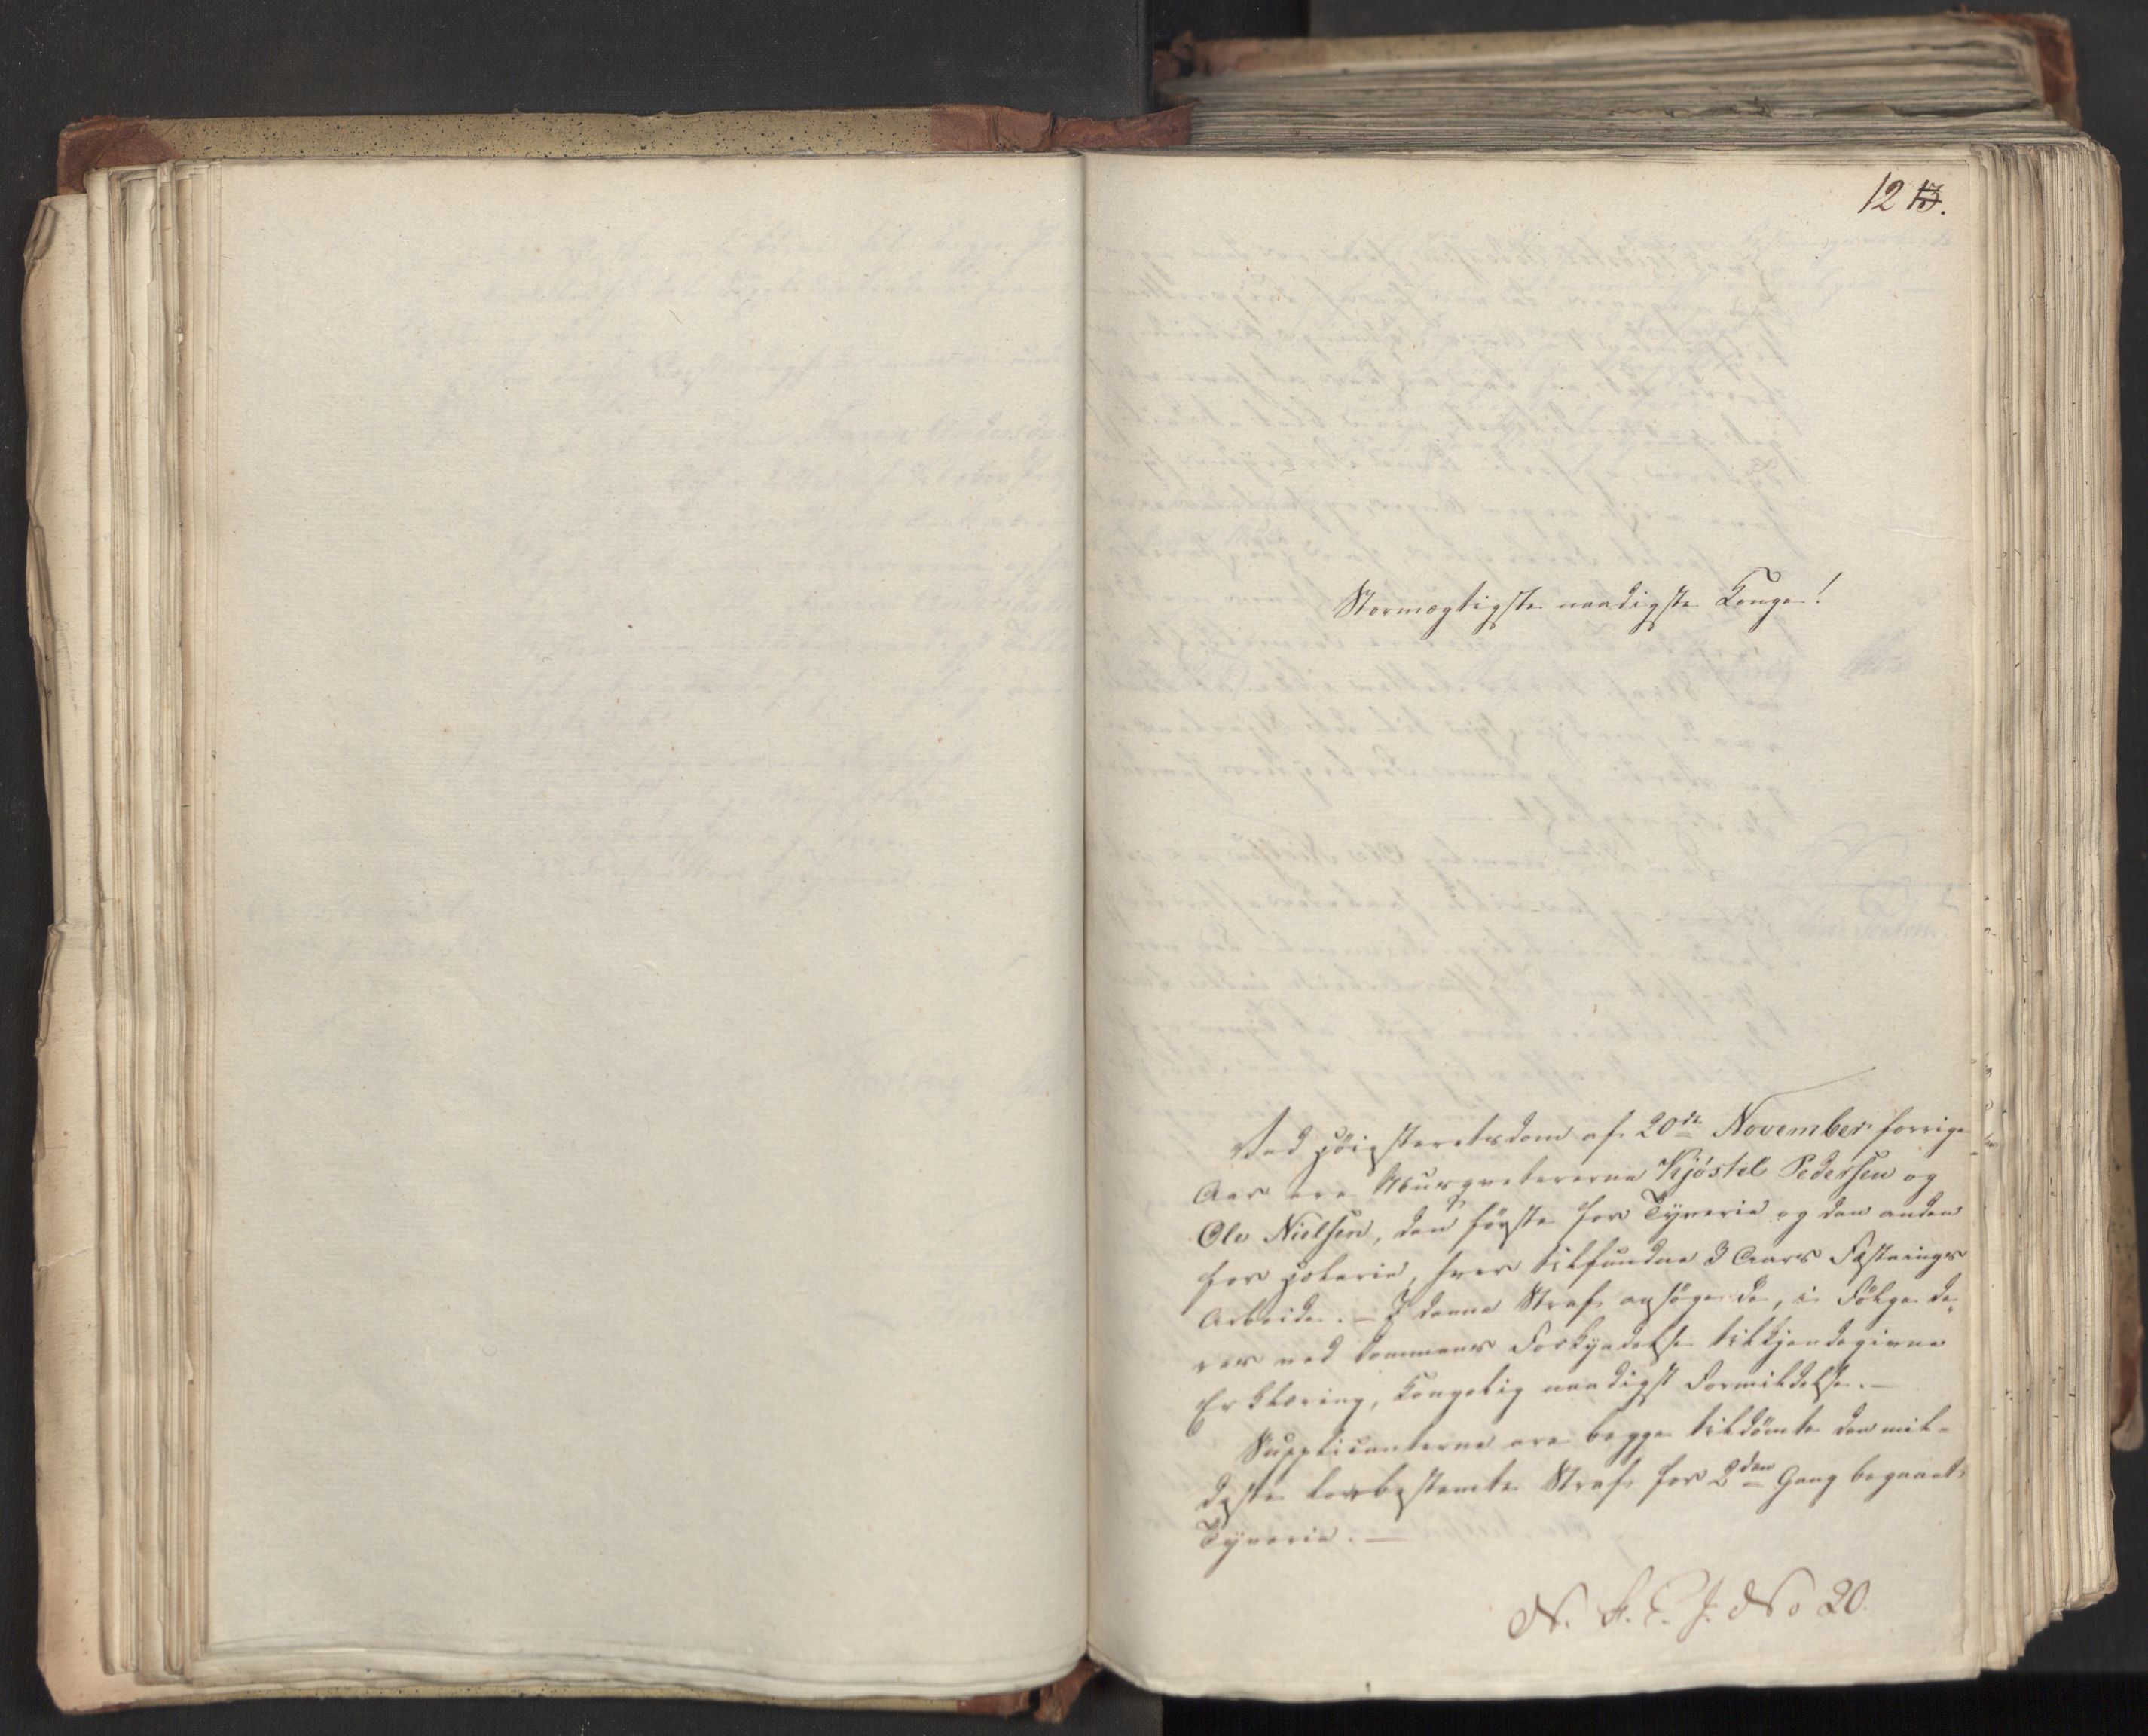 12 13.
Stormægtigste naadigste Konge!
Ved Høiesteretsdom af 20de November forrige
Aar ere Musquetererne Kjøstel Pedersen og
Ole Nielsen, den første for Tyverie og den anden
for Hælerie, hver tilfundne 3 Aars Fæstnings
Arbeide. – I denne Straf ansøge de, i Følge de„
res ved Dommens Forkyndelse tilkjendegivne
Erklæring, Kongelig naadigst Formildelse. –
Supplicanterne ere begge tildømte den mil-
deste lovbestemte Straf for 2den Gang begaaet
Tyverie. –
N. No 20.